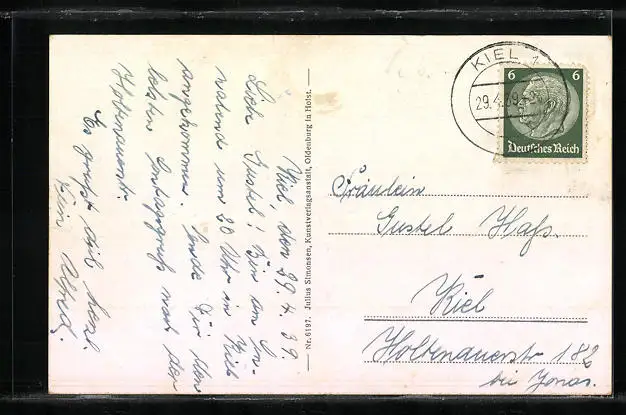 Kiel, den 29.4.39.
Liebe Gustel! Bin am Sonn-
abend um 20 Uhr in Kiel
angekommen. Sende Dir den
letzten Sonntagsgruß nach der
Holtenauerstr.
Es grüßt dich herzl.
Dein Alfred.
Nr. 6197. Julius Simonsen, Kunstverlagsanstalt, Oldenburg in Holst.
KIEL 1
29.4.39
6 6
Deutsches Reich
Fräulein
Gustel Haß.
Kiel
Holtenauerstr 182
bei Jonas.